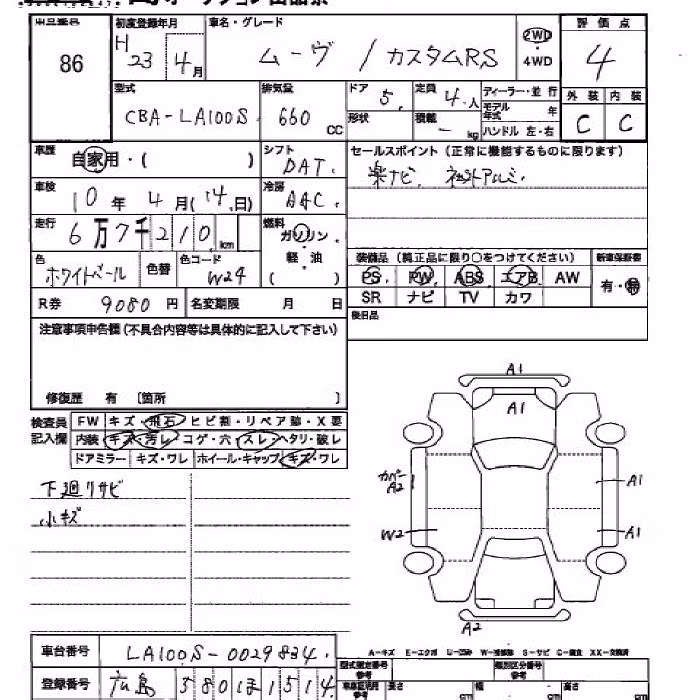 出品番号 初度登録年月 車名・グレード 評価点
86 H23年4月 ムーヴ / カスタムRS 2WD・4WD 4
型式 排気量 ドア 5. 定員 4.人 ディーラー・並 行 外装 内装
CBA-LA100S. 660 CC 形状 積載 - kg モデル年式 年 C C
ハンドル 左・右
車歴 自家用・( ) シフト DAT. セールスポイント (正常に機能するものに限ります)
車検 10年4月(14.日) 冷房 AAC. 楽ナビ. 社外アルミ.
走行 6万7千210km 燃料 ガソリン・軽・油 ( )
色 ホワイトパール 色替 色コード W24
装備品 (純正品に限り○をつけてください) 新車保証書
PS. PW. ABS. エアB. AW 有・無
SR ナビ TV カワ
R券 9080円 名変期限 月 日
後日品
注意事項申告欄 (不具合内容等は具体的に記入して下さい)
修復歴 有 〔箇所 〕
検査員記入欄
FW キズ・飛石・ヒビ割・リペア跡・X要
内装 キズ・汚レ・コゲ・穴・スレ・ヘタリ・破レ
ドアミラー キズ・ワレ ホイール・キャップ キズ・ワレ
下廻リサビ
小キズ
A1
A1
カバー A2
A1
W2
A1
A2
A-キズ E-エクボ U-凹み W-補修跡 S-サビ C-腐食 XX-交換済
車台番号 LA100S-0029834.
登録番号 広島 580ほ1514
型式指定番号 参考 類別区分番号 参考
車庫証明用 参考 長さ cm 幅 cm 高さ cm